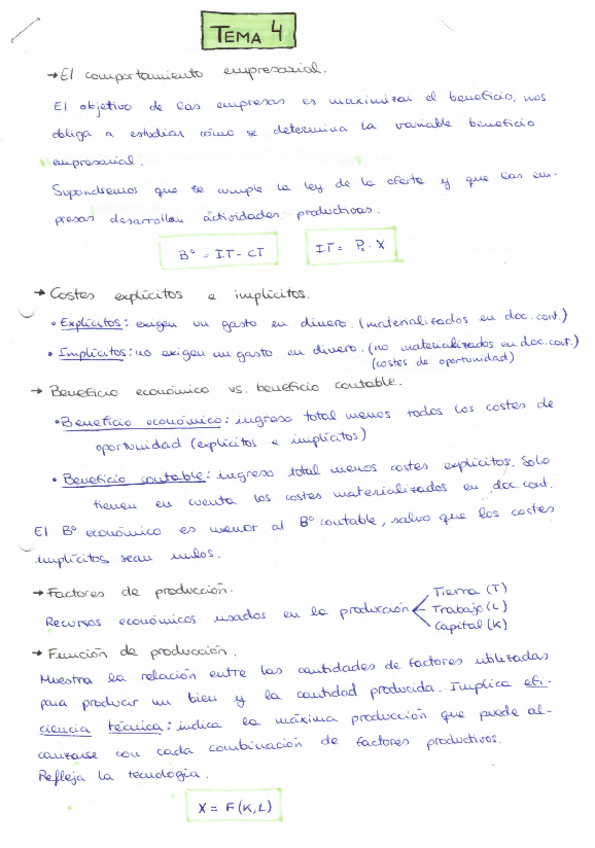 TEMA 4
→ El comportamiento empresarial.
El objetivo de las empresas es maximizar el beneficio, nos
obliga a estudiar cómo se determina la variable beneficio
empresarial.
Supondremos que se cumple la ley de la oferta y que las em-
presas desarrollan actividades productivas.
Bº = IT - CT
IT = Pₓ · X
→ Costes explícitos e implícitos.
• Explícitos: exigen un gasto en dinero. (materializados en doc. cont.)
• Implícitos: no exigen un gasto en dinero. (no materializados en doc. cont.)
(costes de oportunidad)
→ Beneficio económico vs. beneficio contable.
• Beneficio económico: ingreso total menos todos los costes de
oportunidad (explícitos e implícitos)
• Beneficio contable: ingreso total menos costes explícitos. Solo
tienen en cuenta los costes materializados en doc. cont.
El Bº económico es menor al Bº contable, salvo que los costes
implícitos sean nulos.
→ Factores de producción.
Recursos económicos usados en la producción
Tierra (T)
Trabajo (L)
Capital (K)
→ Función de producción.
Muestra la relación entre las cantidades de factores utilizadas
para producir un bien y la cantidad producida. Implica efi-
ciencia técnica: indica la máxima producción que puede al-
canzarse con cada combinación de factores productivos.
Refleja la tecnología.
X = F (K, L)